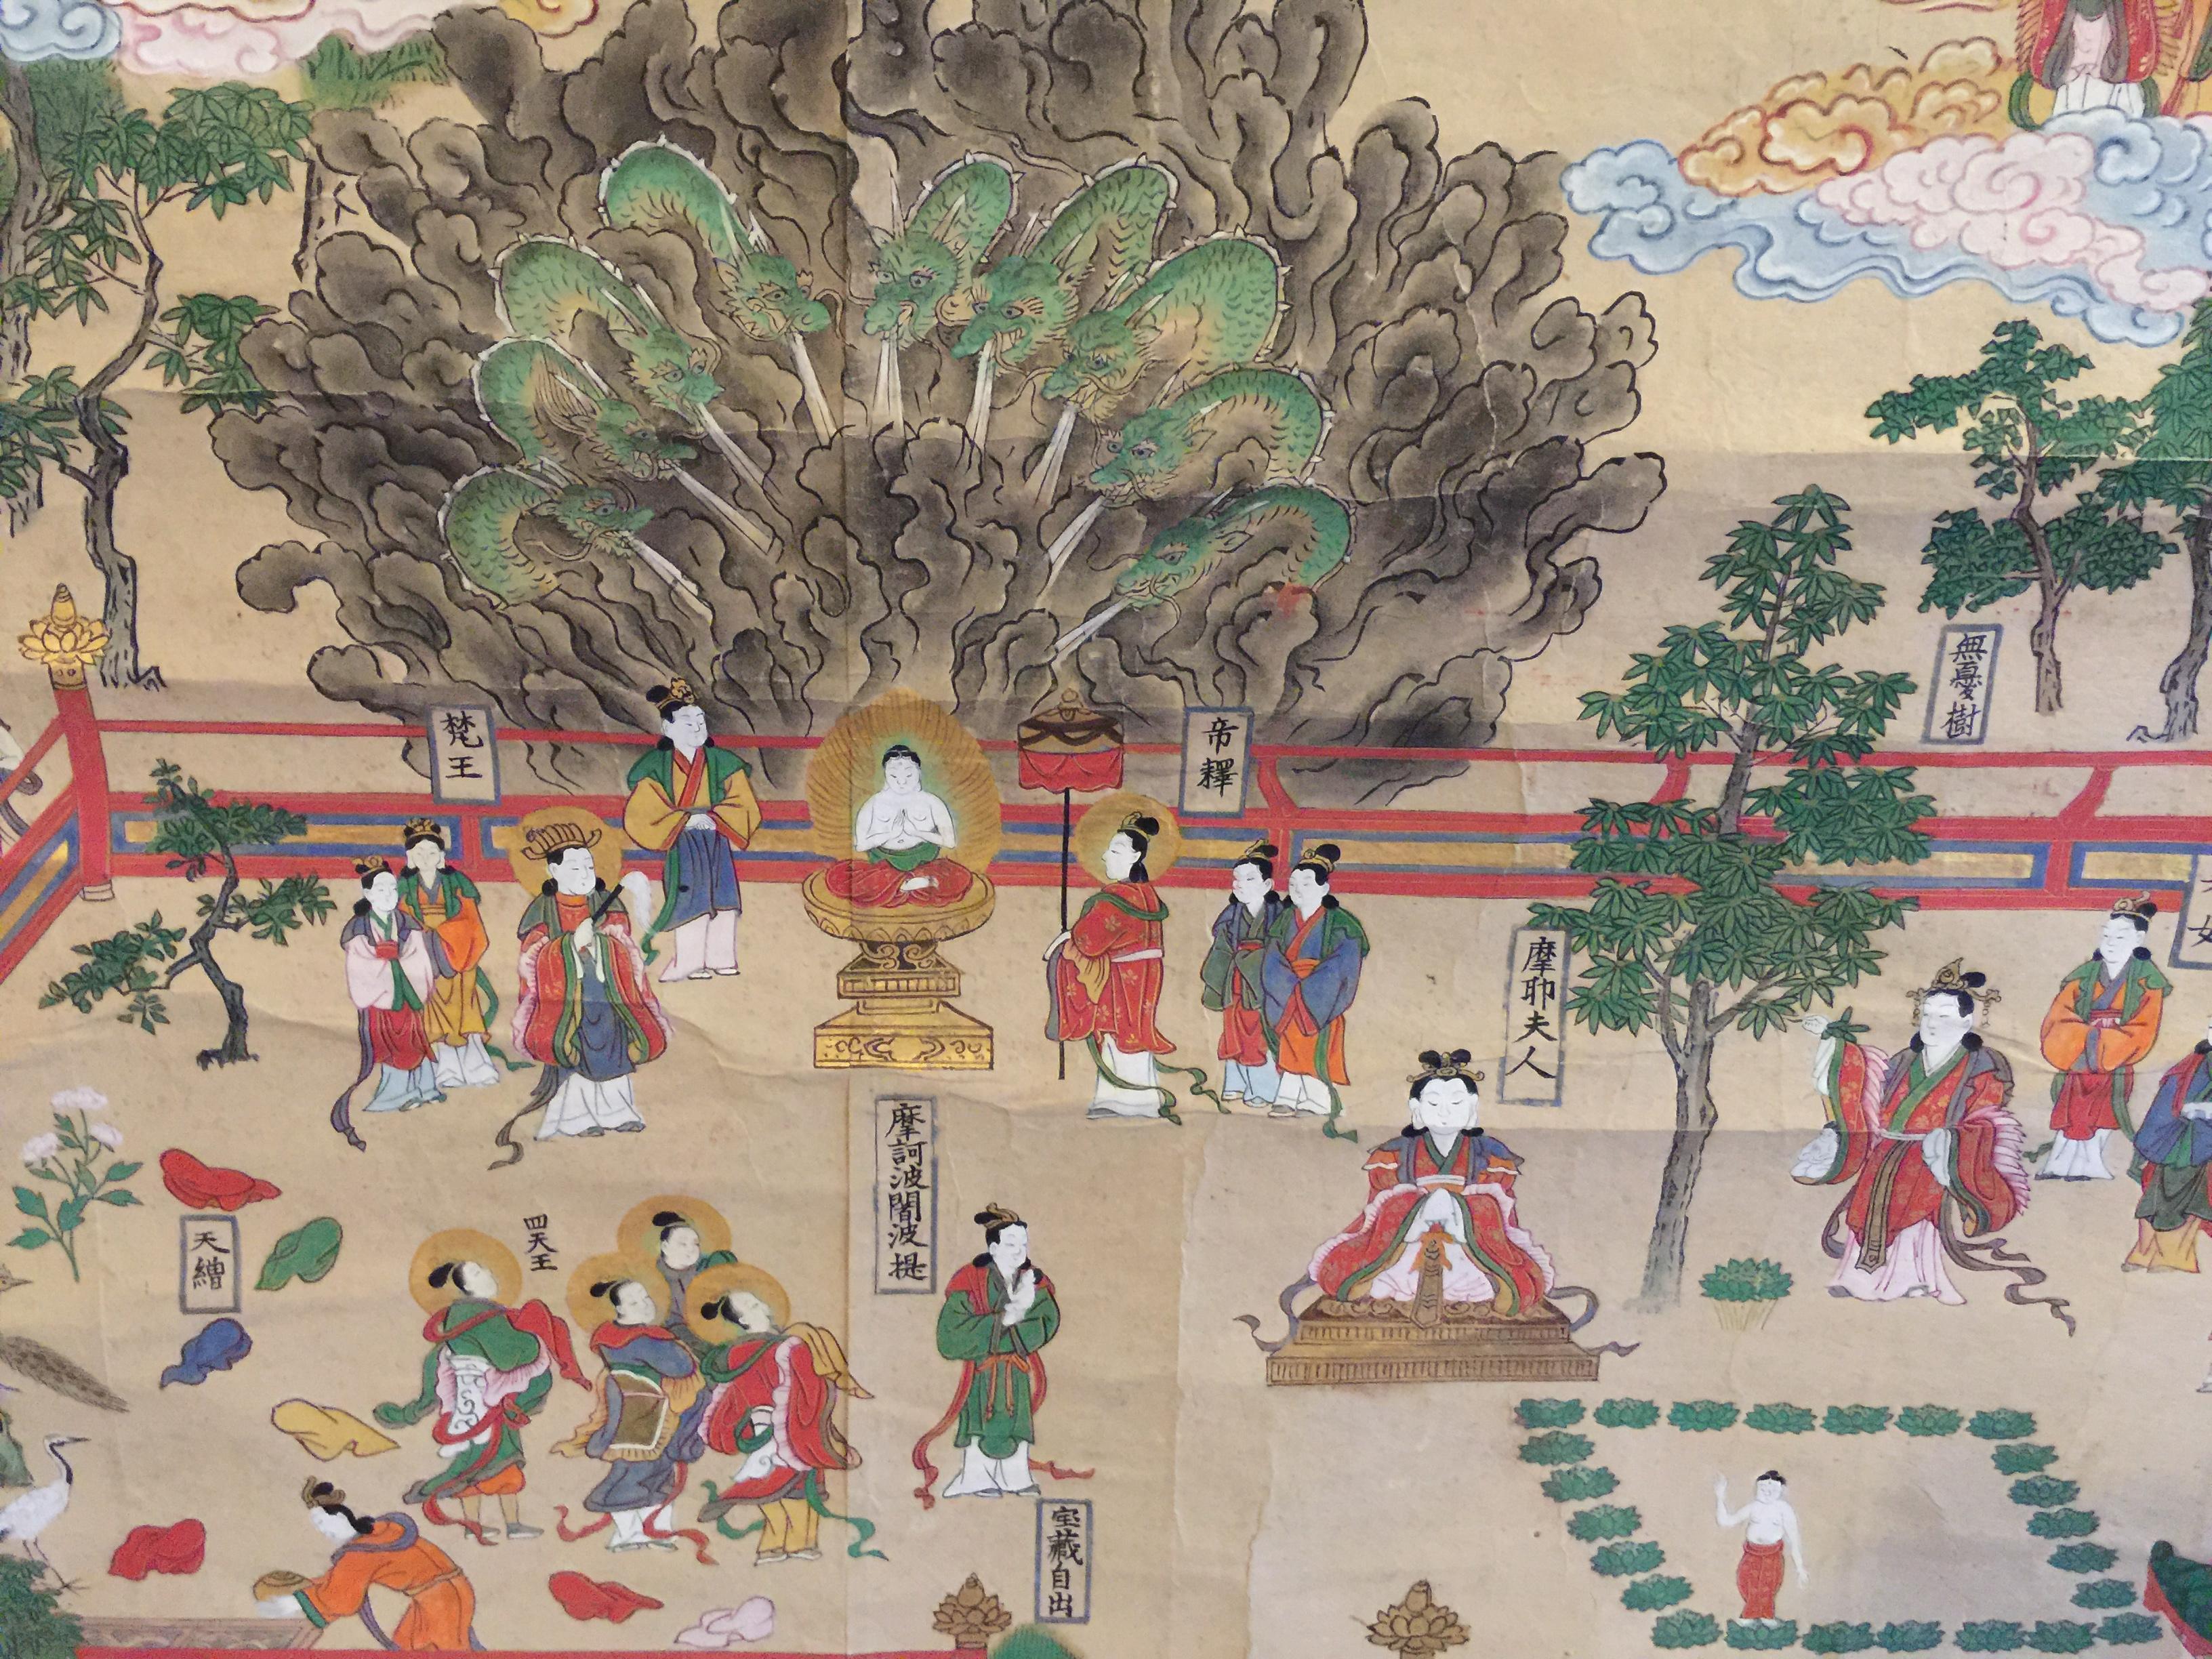 無憂樹
梵王
帝釋
摩耶夫人
摩訶波闍波提
四天王
天繒
宝蔵自出
女